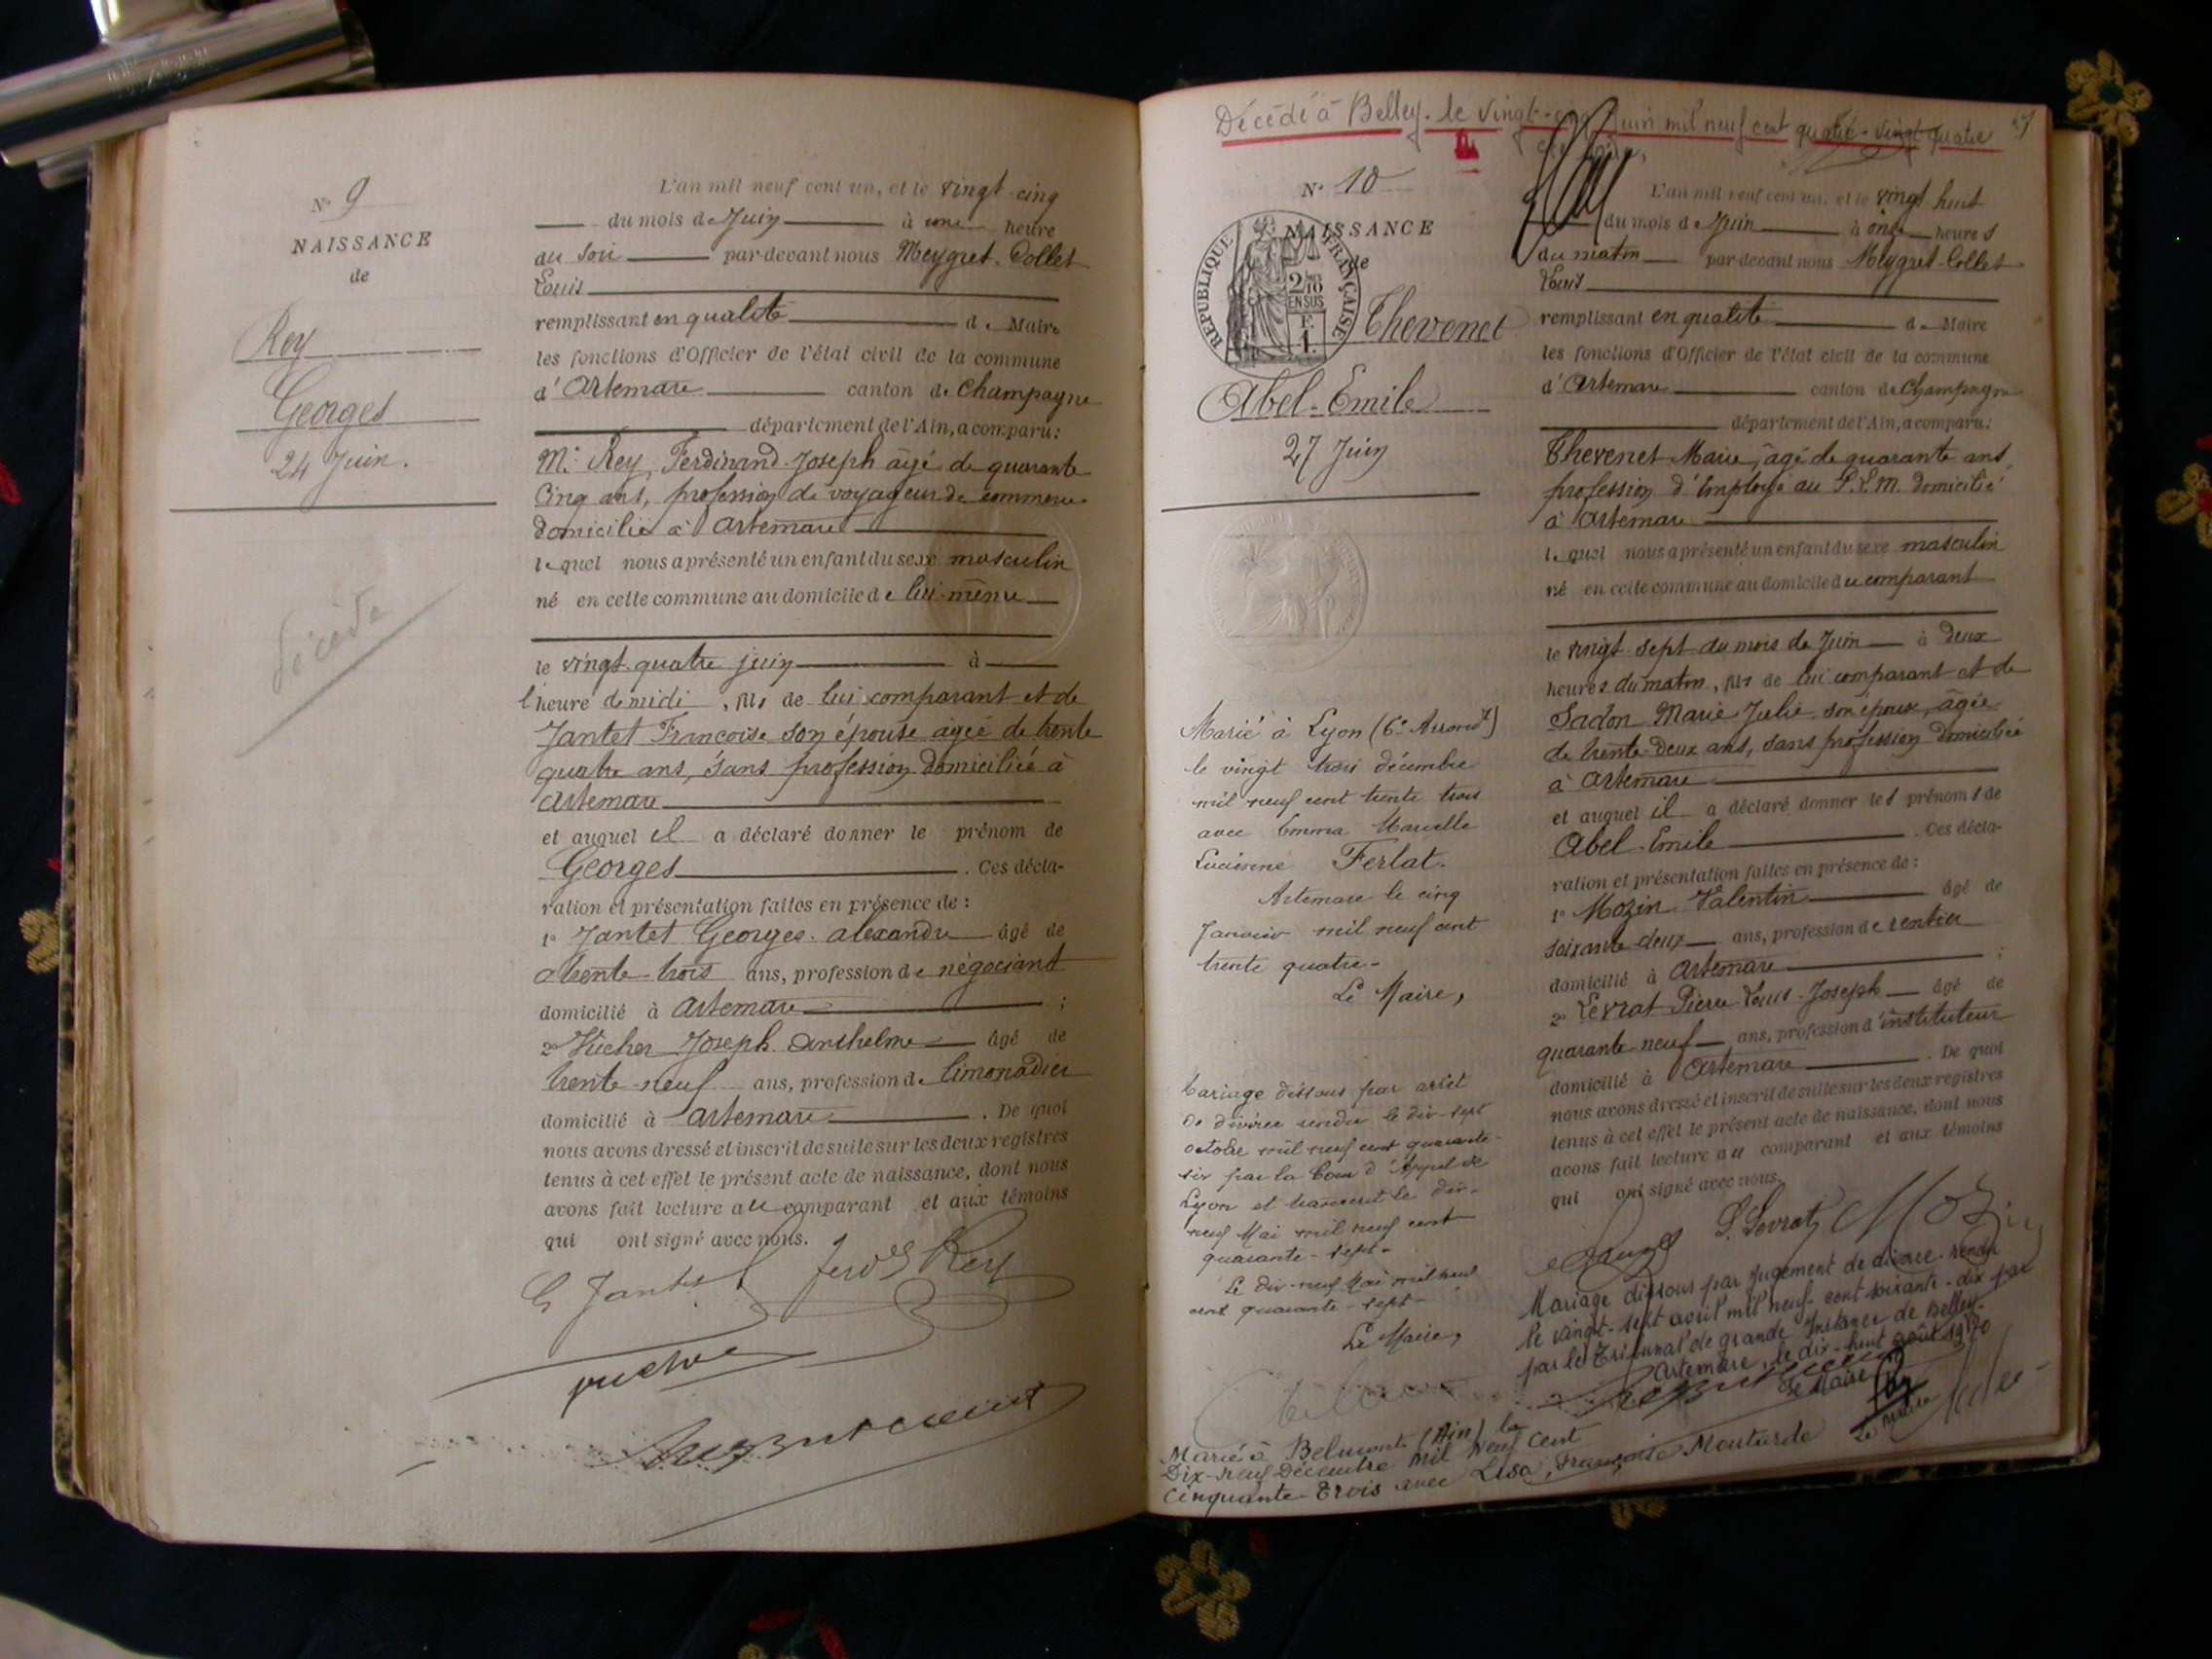 N° 9
NAISSANCE
de
Rey
Georges
24 Juin.
décédé
L'an mil neuf cent un, et le vingt-cinq
du mois de Juin à une heure
du soir par-devant nous Meygret-Collet
Louis
remplissant en qualité de Maire
les fonctions d'Officier de l'état civil de la commune
d'Artemare canton de Champagne
département de l'Ain, a comparu:
Mr Rey Ferdinand-Joseph âgé de quarante
cinq ans, profession de voyageur de commerce
domicilié à Artemare
lequel nous a présenté un enfant du sexe masculin
né en cette commune au domicile de lui-même
le vingt-quatre juin à
l'heure de midi, fils de lui comparant et de
Jantet Françoise son épouse âgée de trente
quatre ans, sans profession domiciliée à
Artemare
et auquel il a déclaré donner le prénom de
Georges. Ces décla-
ration et présentation faites en présence de :
1° Jantet Georges-Alexandre âgé de
trente-trois ans, profession de négociant
domicilié à Artemare ;
2° Vucher Joseph Anthelme âgé de
trente-neuf ans, profession de limonadier
domicilié à Artemare. De quoi
nous avons dressé et inscrit de suite sur les deux registres
tenus à cet effet le présent acte de naissance, dont nous
avons fait lecture au comparant et aux témoins
qui ont signé avec nous.
G Jantet Ferd Rey
Vucher
Décédé à Belley le vingt-cinq Juin mil neuf cent quatre-vingt quatre
N° 10
NAISSANCE
de
REPUBLIQUE FRANÇAISE
2/10
EN SUS
F.
1.
Thevenet
Abel-Emile
27 Juin
Marié à Lyon (6e Arrondt)
le vingt trois décembre
mil neuf cent trente trois
avec Emma Marcelle
Lucienne Ferlat.
Artemare le cinq
Janvier mil neuf cent
trente quatre-
Le Maire,
Mariage dissous par arrêt
de divorce rendu le dix-sept
octobre mil neuf cent quarante-
six par la Cour d'Appel de
Lyon et transcrit le dix-
neuf Mai mil neuf cent
quarante-sept-
Le dix-neuf Mai mil neuf
cent quarante-sept-
Le Maire,
Marié à Belmont (Ain) le
Dix-neuf Décembre mil neuf cent
cinquante-trois avec Lisa, Françoise Moutarde
Le Maire
L'an mil neuf cent un, et le vingt huit
du mois de Juin à onze heures
du matin par-devant nous Meygret-Collet
Louis
remplissant en qualité de Maire
les fonctions d'Officier de l'état civil de la commune
d'Artemare canton de Champagne
département de l'Ain, a comparu:
Thevenet Marie, âgé de quarante ans,
profession d'Employé au P.L.M. domicilié
à Artemare
lequel nous a présenté un enfant du sexe masculin
né en cette commune au domicile du comparant
le vingt-sept du mois de Juin à deux
heures du matin, fils de lui comparant et de
Sadon Marie Julie son épouse, âgée
de trente-deux ans, sans profession domiciliée
à Artemare
et auquel il a déclaré donner les prénoms de
Abel-Emile. Ces décla-
ration et présentation faites en présence de :
1° Mozin Valentin âgé de
soixante-deux ans, profession de rentier
domicilié à Artemare ;
2° Levrat Pierre-Louis-Joseph âgé de
quarante-neuf ans, profession d'instituteur
domicilié à Artemare. De quoi
nous avons dressé et inscrit de suite sur les deux registres
tenus à cet effet le présent acte de naissance, dont nous
avons fait lecture au comparant et aux témoins
qui ont signé avec nous.
P. Levrat Mozin
Mariage dissous par jugement de divorce rendu
le vingt-sept avril mil neuf cent soixante-dix par
par le Tribunal de grande Instance de Belley.
Artemare, le dix-huit août 1970
Le Maire